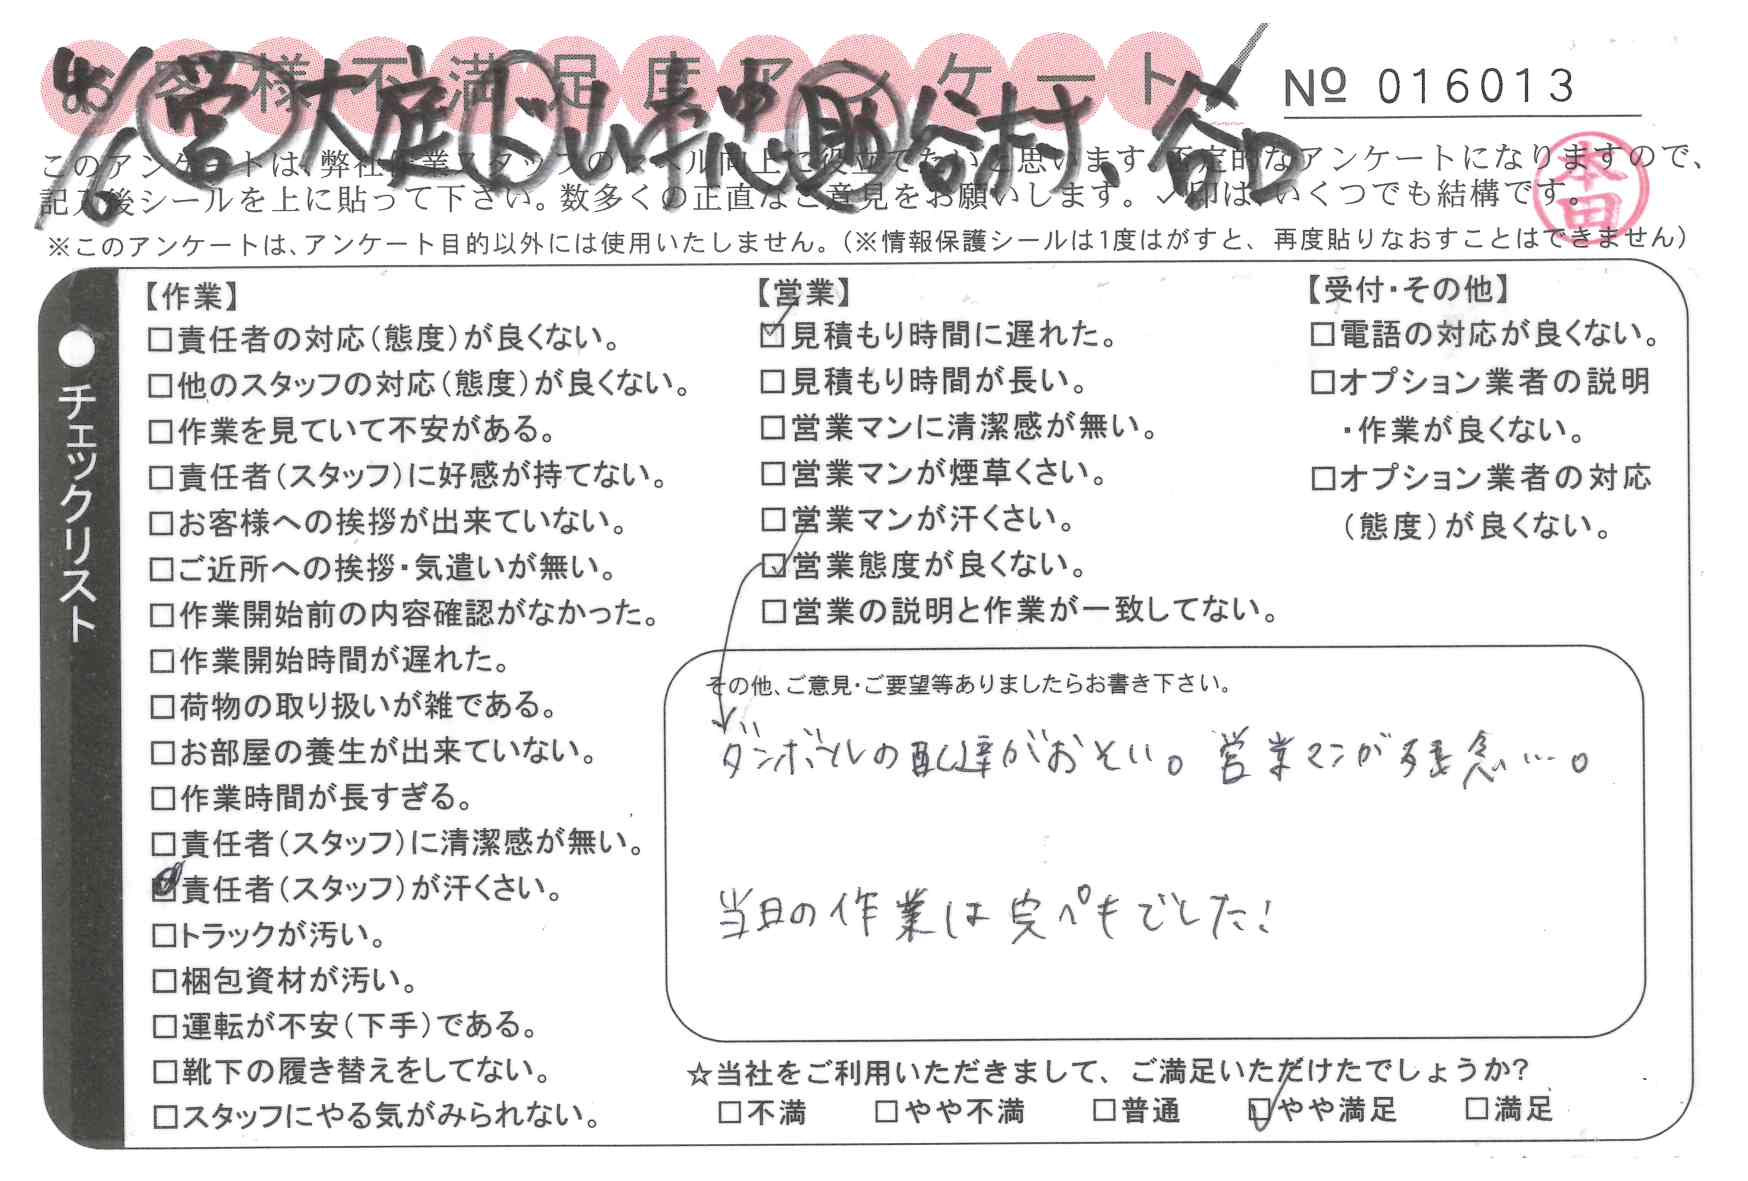 お客様不満足度アンケート
№ 016013
営 大庭 ド 山本忠 助 谷村、谷口
このアンケートは、弊社作業スタッフのレベル向上に役立てたいと思います。否定的なアンケートになりますので、
記入後シールを上に貼って下さい。数多くの正直なご意見をお願いします。✓印は、いくつでも結構です。
本田
※このアンケートは、アンケート目的以外には使用いたしません。（※情報保護シールは1度はがすと、再度貼りなおすことはできません）
●チェックリスト
【作業】
□責任者の対応（態度）が良くない。
□他のスタッフの対応（態度）が良くない。
□作業を見ていて不安がある。
□責任者（スタッフ）に好感が持てない。
□お客様への挨拶が出来ていない。
□ご近所への挨拶・気遣いが無い。
□作業開始前の内容確認がなかった。
□作業開始時間が遅れた。
□荷物の取り扱いが雑である。
□お部屋の養生が出来ていない。
□作業時間が長すぎる。
□責任者（スタッフ）に清潔感が無い。
□責任者（スタッフ）が汗くさい。
□トラックが汚い。
□梱包資材が汚い。
□運転が不安（下手）である。
□靴下の履き替えをしてない。
□スタッフにやる気がみられない。
【営業】
☑見積もり時間に遅れた。
□見積もり時間が長い。
□営業マンに清潔感が無い。
□営業マンが煙草くさい。
□営業マンが汗くさい。
☑営業態度が良くない。
□営業の説明と作業が一致してない。
【受付・その他】
□電語の対応が良くない。
□オプション業者の説明
・作業が良くない。
□オプション業者の対応
（態度）が良くない。
その他、ご意見・ご要望等ありましたらお書き下さい。
ダンボールの配達がおそい。営業マンが残念…。
当日の作業は完ペキでした！
☆当社をご利用いただきまして、ご満足いただけたでしょうか？
□不満 □やや不満 □普通 ☑やや満足 □満足